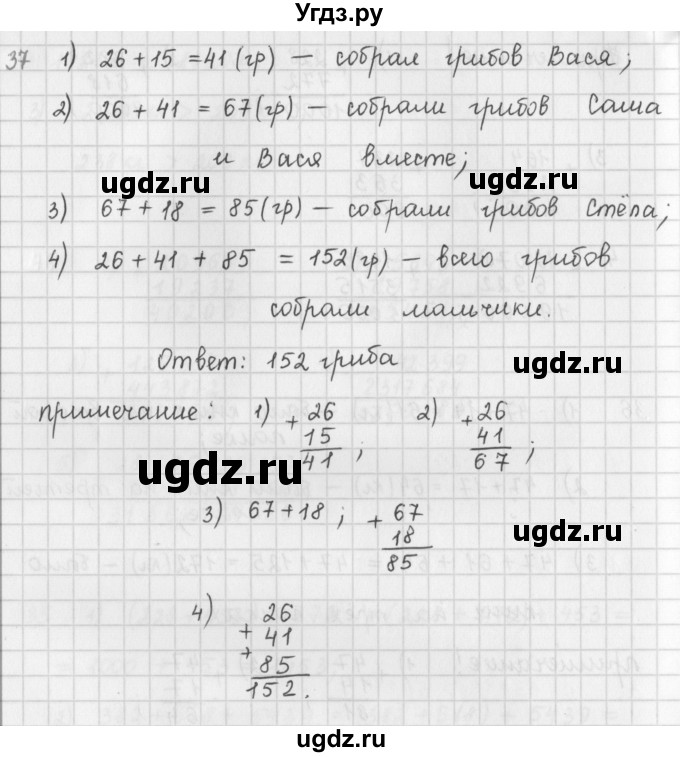 Угдз.ру
37 1) 26+15=41(гр) – собрал грибов Вася;
2) 26+41=67(гр) – собрали грибов Саша
и Вася вместе;
ugdz.ru ugdz.ru
3) 67+18=85(гр) – собрали грибов Стёпа;
4) 26+41+85=152(гр) – всего грибов
собрали мальчики.
Ответ: 152 гриба
ugdz.ru
примечание: 1) + 26 2) + 26
15 41
41; 67;
ugdz.ru
3) 67+18; + 67
18
85
ugdz.ru
4) 26
+ 41
+ 85
152.
ugdz.ru